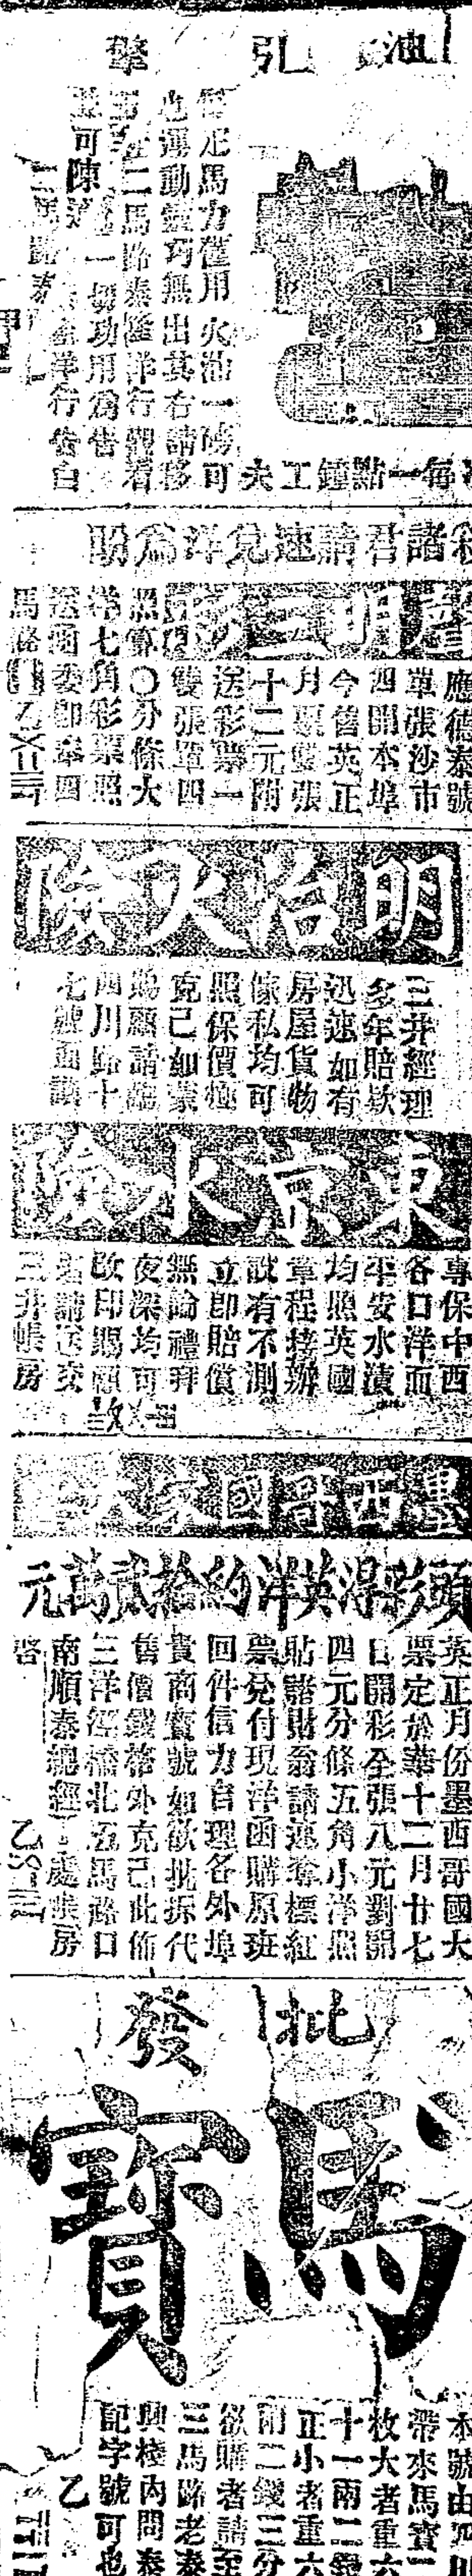 油引擎
每一點鐘工夫
疋馬力僅用火油一磅可
也運動靈巧無出其右請移
二馬路泰隆洋行觀看
可陳一切功用為告
二馬路泰隆洋行告白
諸君請速兌洋為盼
應德泰號
單張沙市
四開本埠
今舊英正
月票雙張
十二元開
送彩票一
雙張單四
照算〇分條大
洋七角彩票照
送函委即奉四
馬路
明治火險
三井經理
多年賠款
迅速如有
房屋貨物
傢私均可
照保價極
克己如蒙
賜顧請臨
四川路十
七號面議
東京水險
專保中西
各口洋面
平安水漬
均照英國
章程接辦
設有不測
立即賠償
無論禮拜
夜深均可
改印賜顧
者請送交
三井帳房
墨西哥國
頭彩得英洋約拾貳萬元
英正月份墨西哥國大
票定於華十二月廿七
日開彩全張八元對開
四元分條五角小洋照
貼諸財翁請速奪標紅
票兌付現洋函購原班
回件信力自理各外埠
貴商寶號如欲批拆代
售價錢格外克己此佈
三洋涇橋北五馬路口
南順泰總經理處帳房
啓
批發
馬寶
本號由四川
帶來馬寶二
枚大者重六
十一兩二錢
正小者重六
兩二錢三分
欲購者請至
三馬路老泰
興棧內問泰
記字號可也